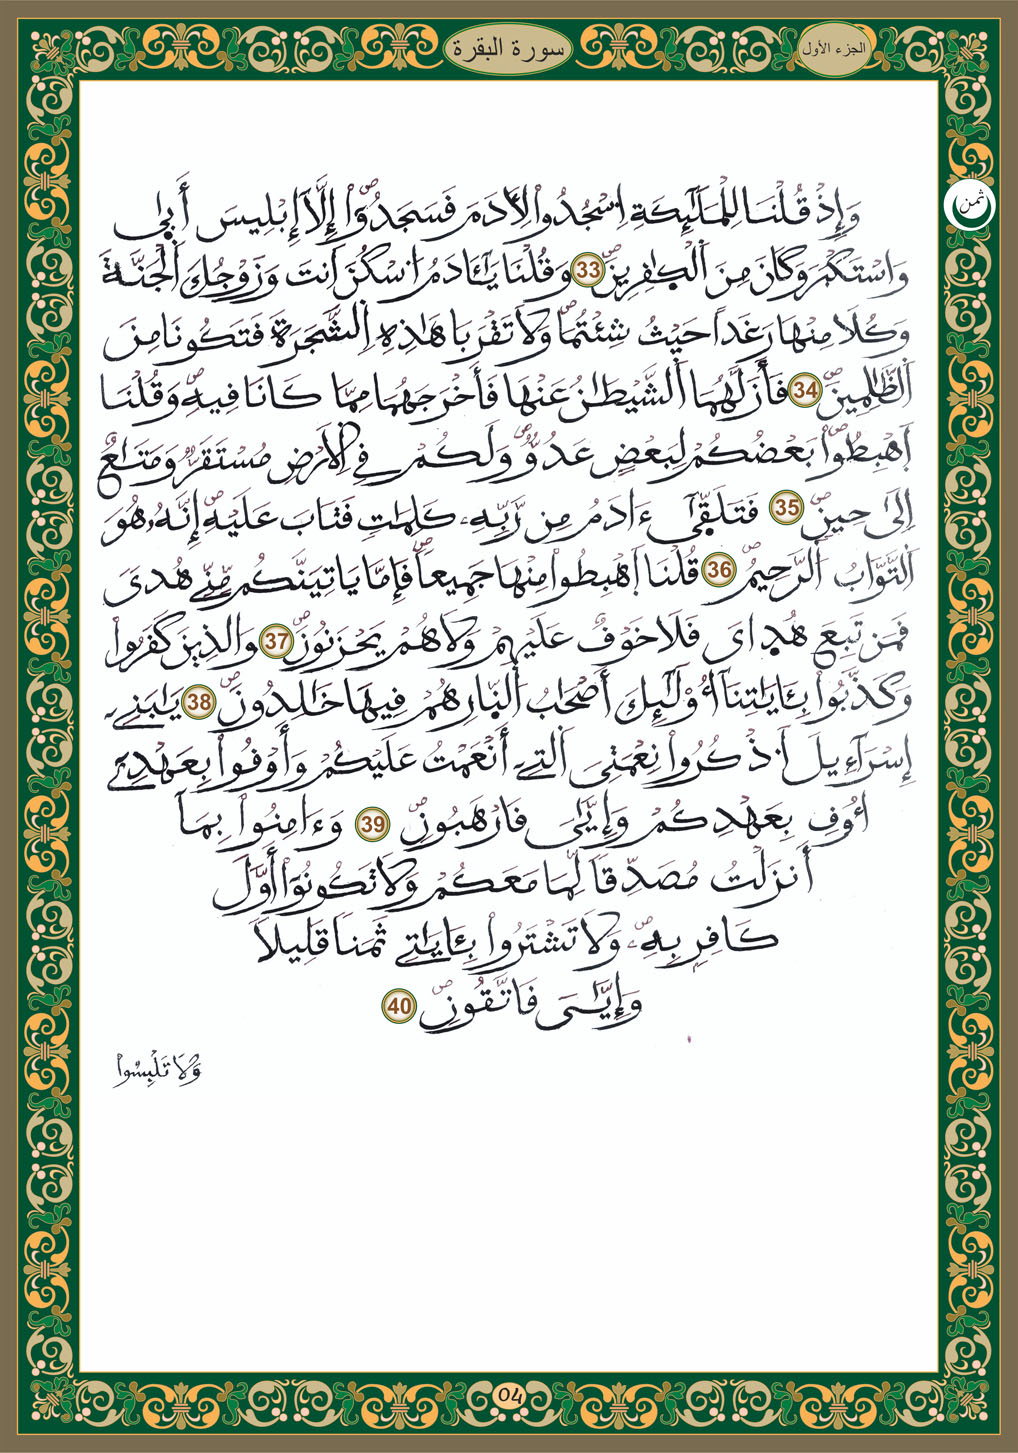 الجزء الأول
سورة البقرة
ثمن
وَإِذْ قُلْنَا لِلْمَلَٰٓئِكَةِ اِ۟سْجُدُوا۟ لِأَدَمَ فَسَجَدُوٓا۟ إِلَّآ إِبْلِيسَ أَبَىٰ
وَاسْتَكْبَرَ وَكَانَ مِنَ اَلْكَٰفِرِينَۖ 33 وَقُلْنَا يَٰٓـَٔادَمُ اُ۟سْكُنَ اَنتَ وَزَوْجُكَ اَلْجَنَّةَ
وَكُلَا مِنْهَا رَغَداً حَيْثُ شِئْتُمَاۖ وَلَا تَقْرَبَا هَٰذِهِ اِ۬لشَّجَرَةَ فَتَكُونَا مِنَ
اَلظَّٰلِمِينَۖ 34 فَأَزَلَّهُمَا اَلشَّيْطَٰنُ عَنْهَا فَأَخْرَجَهُمَا مِمَّا كَانَا فِيهِۖ وَقُلْنَا
اَهْبِطُوا۟ۖ بَعْضُكُمْ لِبَعْضٍ عَدُوّٞۖ وَلَكُمْ فِے اِ۬لَارْضِ مُسْتَقَرّٞ وَمَتَٰعٌ
اِلَىٰ حِينٖۖ 35 فَتَلَقَّىٰٓ ءَادَمُ مِن رَّبِّهِۦ كَلِمَٰتٖ فَتَابَ عَلَيْهِۖ إِنَّهُۥ هُوَ
اَلتَّوَّابُ اُ۬لرَّحِيمُۖ 36 قُلْنَا اَهْبِطُوا۟ مِنْهَا جَمِيعاٗۖ فَإِمَّا يَاتِيَنَّكُم مِّنِّے هُدىٗ
فَمَن تَبِعَ هُدَايَ فَلَا خَوْفٌ عَلَيْهِمْ وَلَا هُمْ يَحْزَنُونَۖ 37 وَالذِينَ كَفَرُوا۟
وَكَذَّبُوا۟ بِـَٔايَٰتِنَآ أُو۟لَٰٓئِكَ أَصْحَٰبُ اُ۬لنَّارِ هُمْ فِيهَا خَٰلِدُونَۖ 38 يَٰبَنِےٓ
إِسْرَآءِيلَ اَ۟ذْكُرُوا۟ نِعْمَتِيَ اَلتِےٓ أَنْعَمْتُ عَلَيْكُمْ وَأَوْفُوا۟ بِعَهْدِےٓ
أُوفِ بِعَهْدِكُمْ وَإِيَّٰيَ فَارْهَبُونِۖ 39 وَءَامِنُوا۟ بِمَآ
أَنزَلْتُ مُصَدِّقاٗ لِّمَا مَعَكُمْ وَلَا تَكُونُوٓا۟ أَوَّلَ
كَافِرِۢ بِهِۦۖ وَلَا تَشْتَرُوا۟ بِـَٔايَٰتِے ثَمَناٗ قَلِيلاٗ
وَإِيَّٰيَ فَاتَّقُونِۖ 40
وَلَا تَلْبِسُوا۟
04